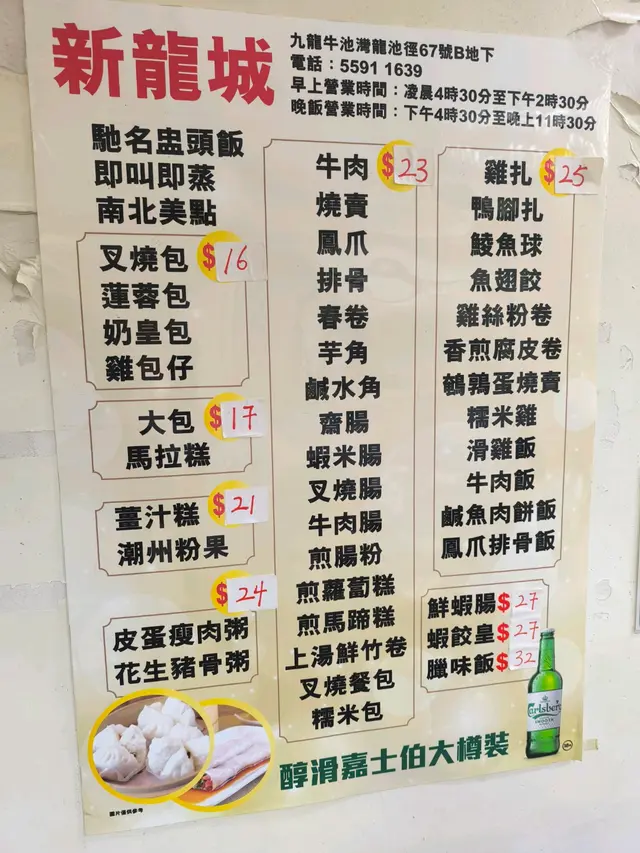 新龍城
九龍牛池灣龍池徑67號B地下
電話：5591 1639
早上營業時間：凌晨4時30分至下午2時30分
晚飯營業時間：下午4時30分至晚上11時30分
馳名盅頭飯
即叫即蒸
南北美點
叉燒包 $16
蓮蓉包
奶皇包
雞包仔
大包 $17
馬拉糕
薑汁糕 $21
潮州粉果
$24
皮蛋瘦肉粥
花生豬骨粥
牛肉 $23
燒賣
鳳爪
排骨
春卷
芋角
鹹水角
齋腸
蝦米腸
叉燒腸
牛肉腸
煎腸粉
煎蘿蔔糕
煎馬蹄糕
上湯鮮竹卷
叉燒餐包
糯米包
雞扎 $25
鴨腳扎
鯪魚球
魚翅餃
雞絲粉卷
香煎腐皮卷
鵪鶉蛋燒賣
糯米雞
滑雞飯
牛肉飯
鹹魚肉餅飯
鳳爪排骨飯
鮮蝦腸 $27
蝦餃皇 $27
臘味飯 $32
Carlsberg
醇滑嘉士伯大樽裝
圖片僅供參考